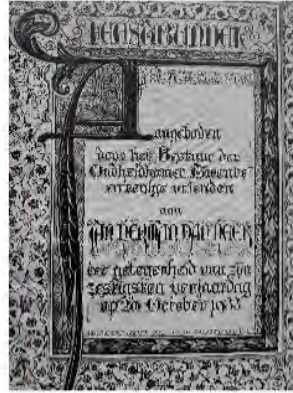 FEESTBUNDEL
Aangeboden
door het Bestuur der
Oudheidkamer Twente
en eenige vrienden
aan
JAN HERMAN
ter gelegenheid van zijn
zestigsten verjaardag
op 20 October